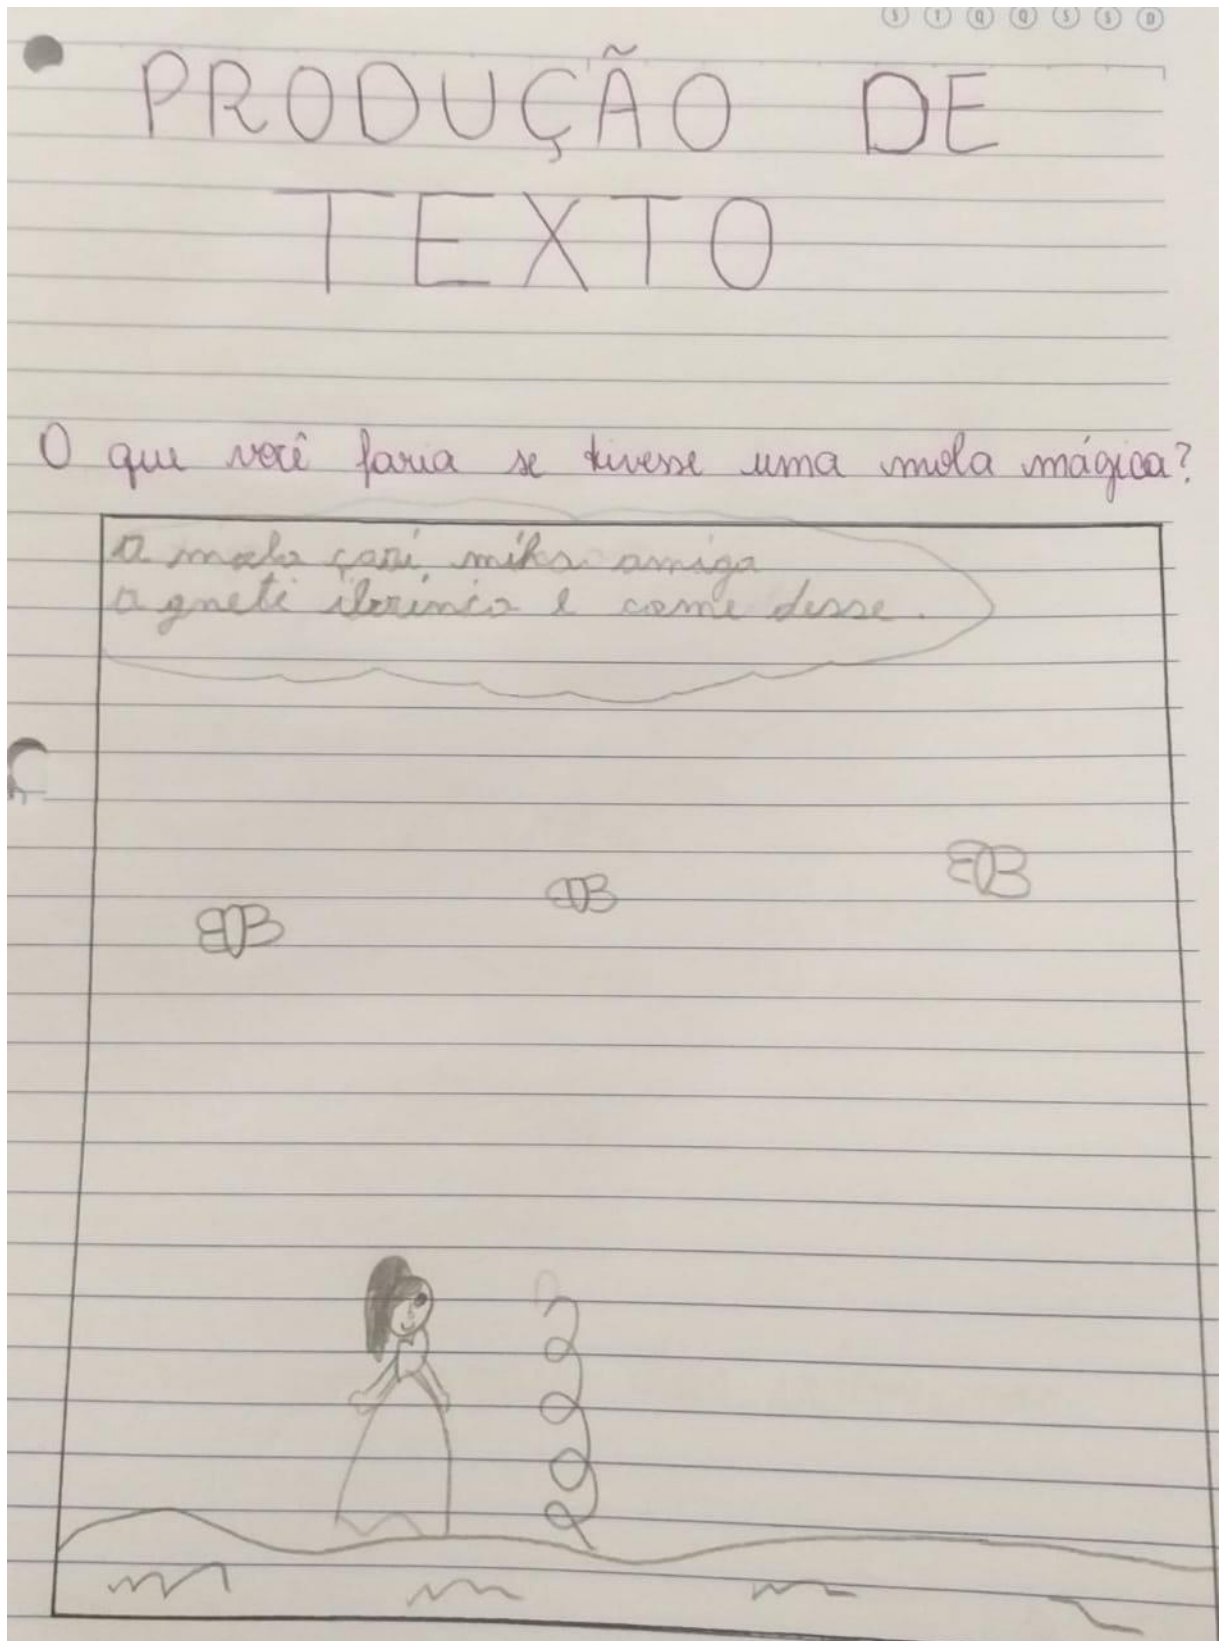 S T Q Q S S D
PRODUÇÃO DE
TEXTO
O que você faria se tivesse uma mola mágica?
a mola çari miha amiga
agneti ibrinca e come desse.